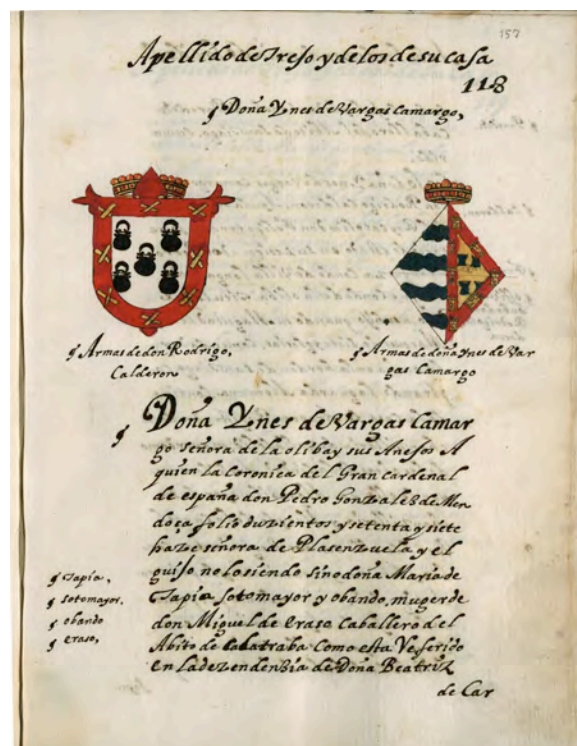 157
Apellido de Trejo y de los de su casa
118
q Doña Ynes de Vargas Camargo,
q Armas de don Rodrigo,
Calderon
q Armas de doña Ynes de Var
gas Camargo
q Doña Ynes de Vargas Camar
go señora de la oliba y sus Anejos A
quien la Coronica del Gran Cardenal
de españa don Pedro Gonzales de Men
doça folio duzientos y setenta y siete
haze señora de Plasenzuela y el
guijo no lo siendo sino doña Maria de
Tapia sotomayor y obando, muger de
don Miguel de eraso Caballero del
Abito de Calatraba Como esta Referido
en la dezendenzia de Doña Beatriz
de Car
q Tapia,
q sotomayor.
q obando
q eraso,